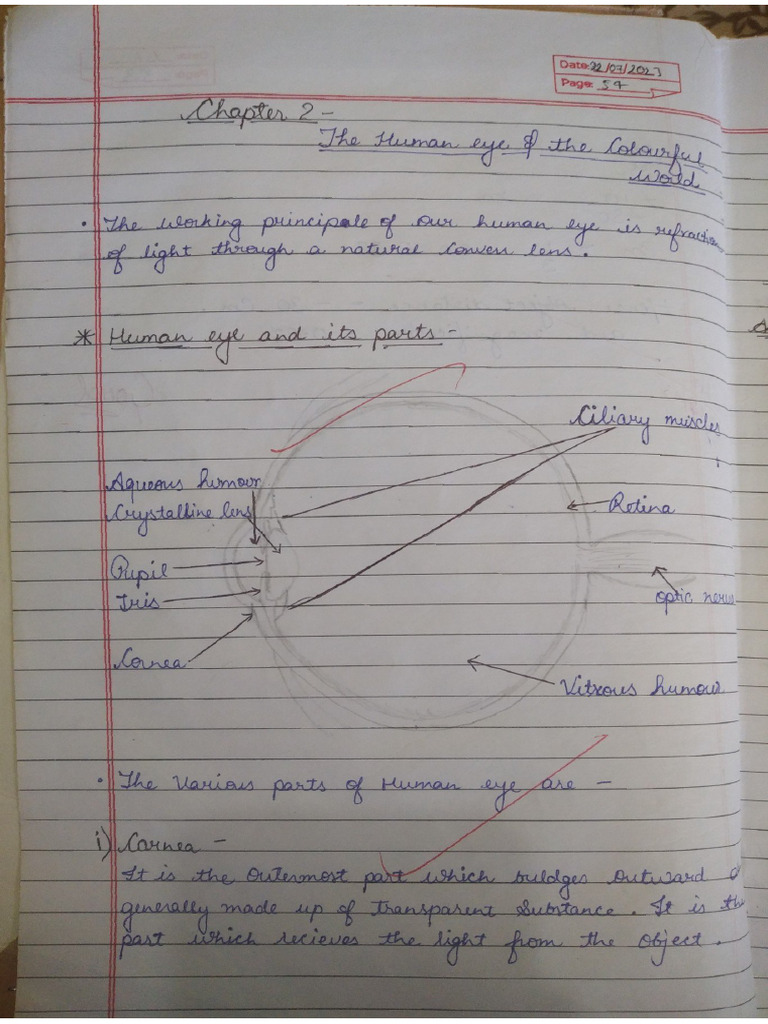 Date: 22/07/2023
Page: 54
Chapter 2 -
The Human eye & the Colourful
World
• The working principale of our human eye is refraction
of light through a natural convex lens.
* Human eye and its parts -
Ciliary muscles
Aqueous humour
Crystalline lens
Retina
Pupil
Iris
optic nerve
Cornea
Vitreous humour
• The Various parts of Human eye are -
i) Cornea -
It is the outermost part which buldges outward &
generally made up of transparent substance. It is the
part which recieves the light from the object.